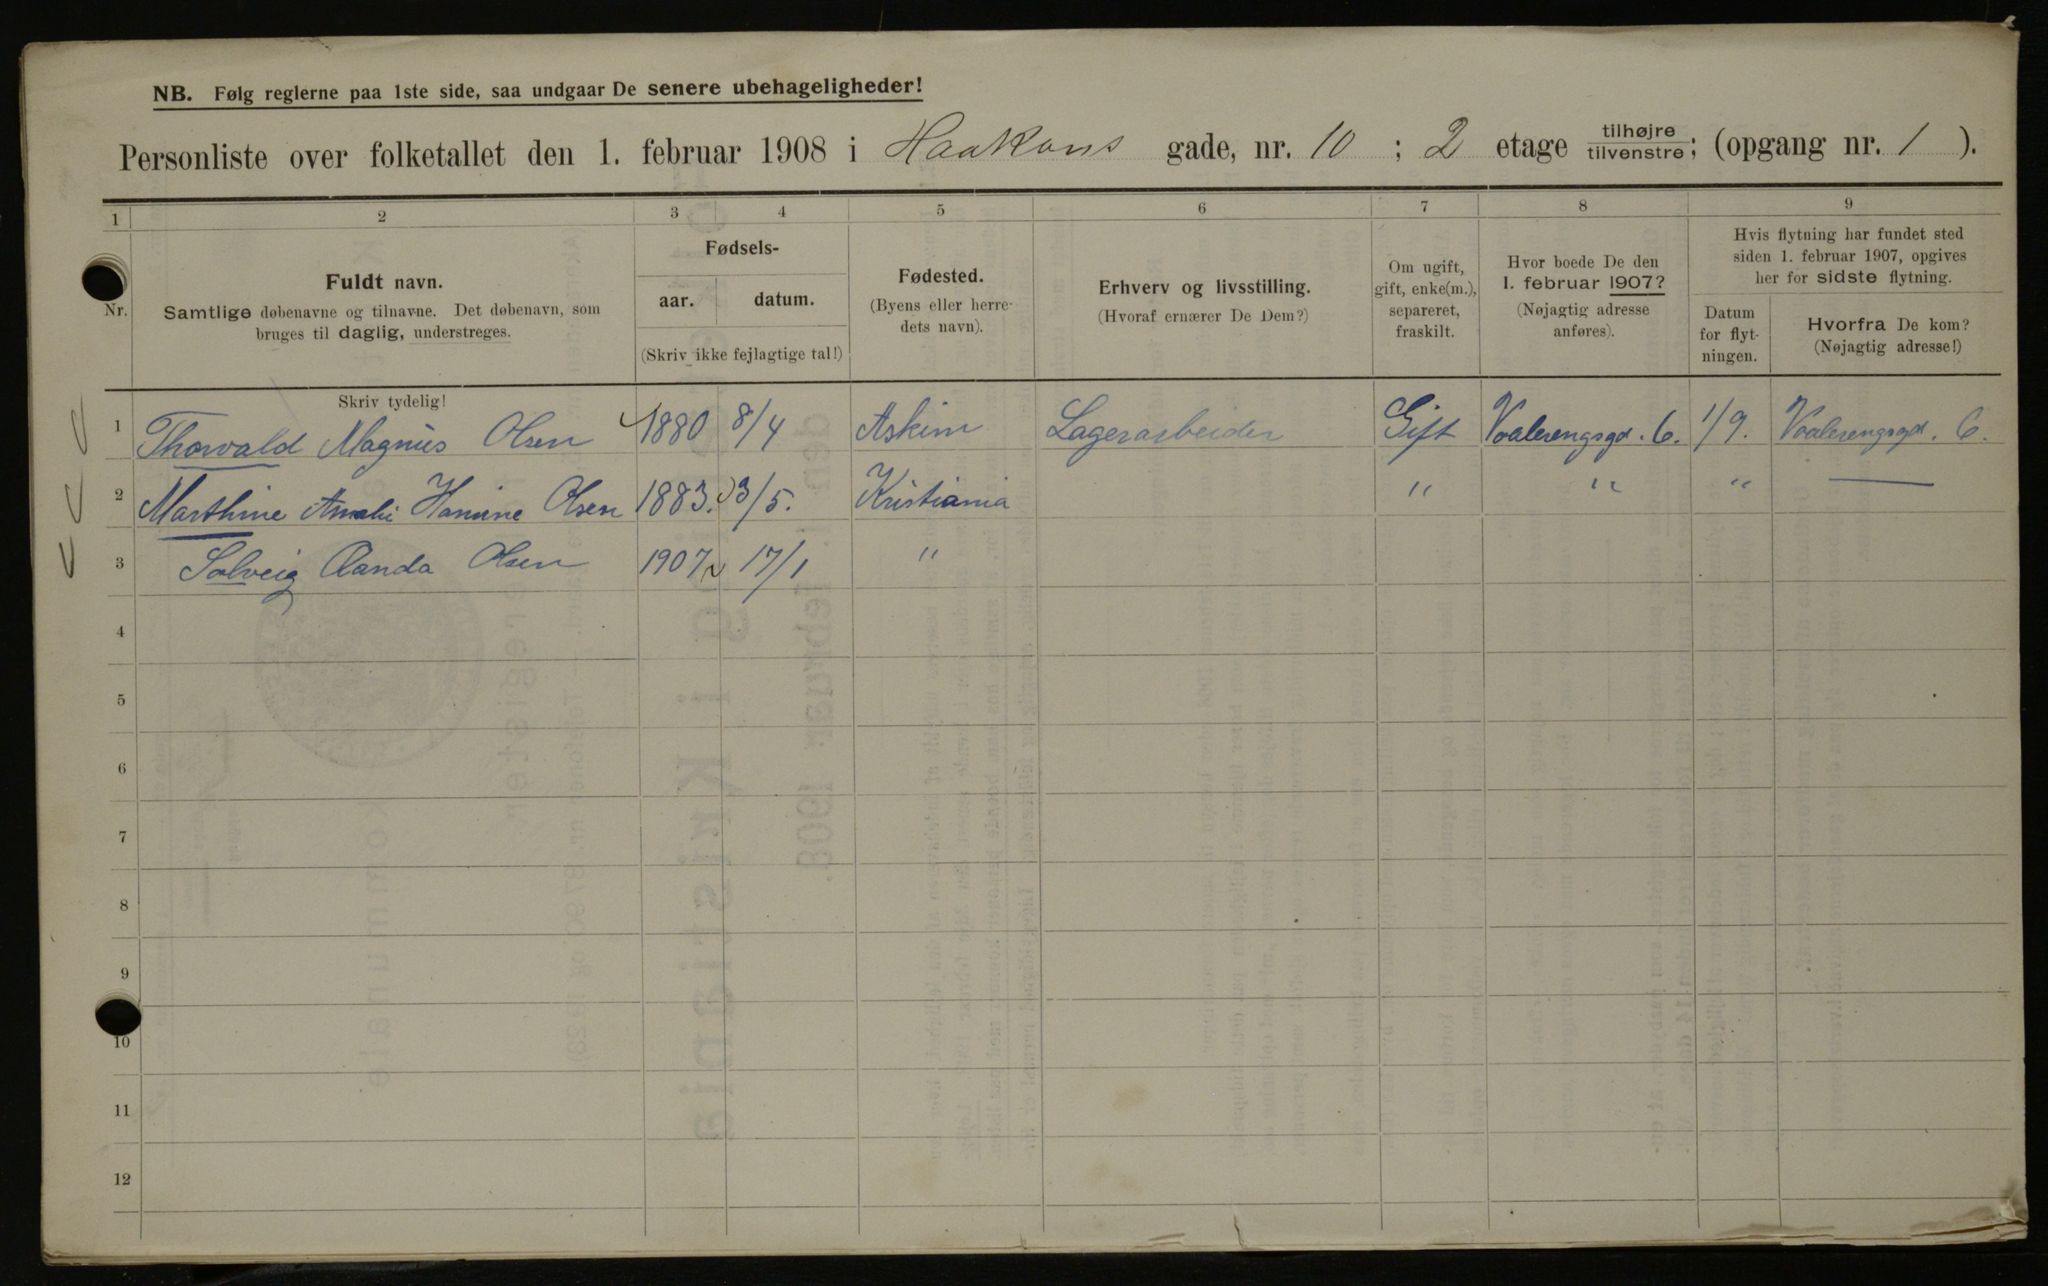 NB. Følg reglerne paa 1ste side, saa undgaar De senere ubehageligheder!
Personliste over folketallet den 1. februar 1908 i Haakons gade, nr. 10 ; 2 etage tilhøjre tilvenstre; (opgang nr. 1 ).
1 2 3 4 5 6 7 8 9
Nr.
Fuldt navn.
Samtlige døbenavne og tilnavne. Det døbenavn, som
bruges til daglig, understreges.
Fødsels-
aar. datum.
(Skriv ikke fejlagtige tal!)
Fødested.
(Byens eller herre-
dets navn).
Erhverv og livsstilling.
(Hvoraf ernærer De Dem?)
Om ugift,
gift, enke(m.),
separeret,
fraskilt.
Hvor boede De den
1. februar 1907?
(Nøjagtig adresse
anføres).
Hvis flytning har fundet sted
siden 1. februar 1907, opgives
her for sidste flytning.
Datum
for flyt-
ningen.
Hvorfra De kom?
(Nøjagtig adresse!)
Skriv tydelig!
1 Thorvald Magnus Olsen 1880 8/4 Askim Lagerarbeider Gift Vaalerengsgd. 6. 1/9. Vaalerengsgd. 6.
2 Marthine Amalie Hanine Olsen 1883. 3/5. Kristiania " " " —
3 Solveig Vanda Olsen 1907 17/1 "
4
5
6
7
8
9
10
11
12